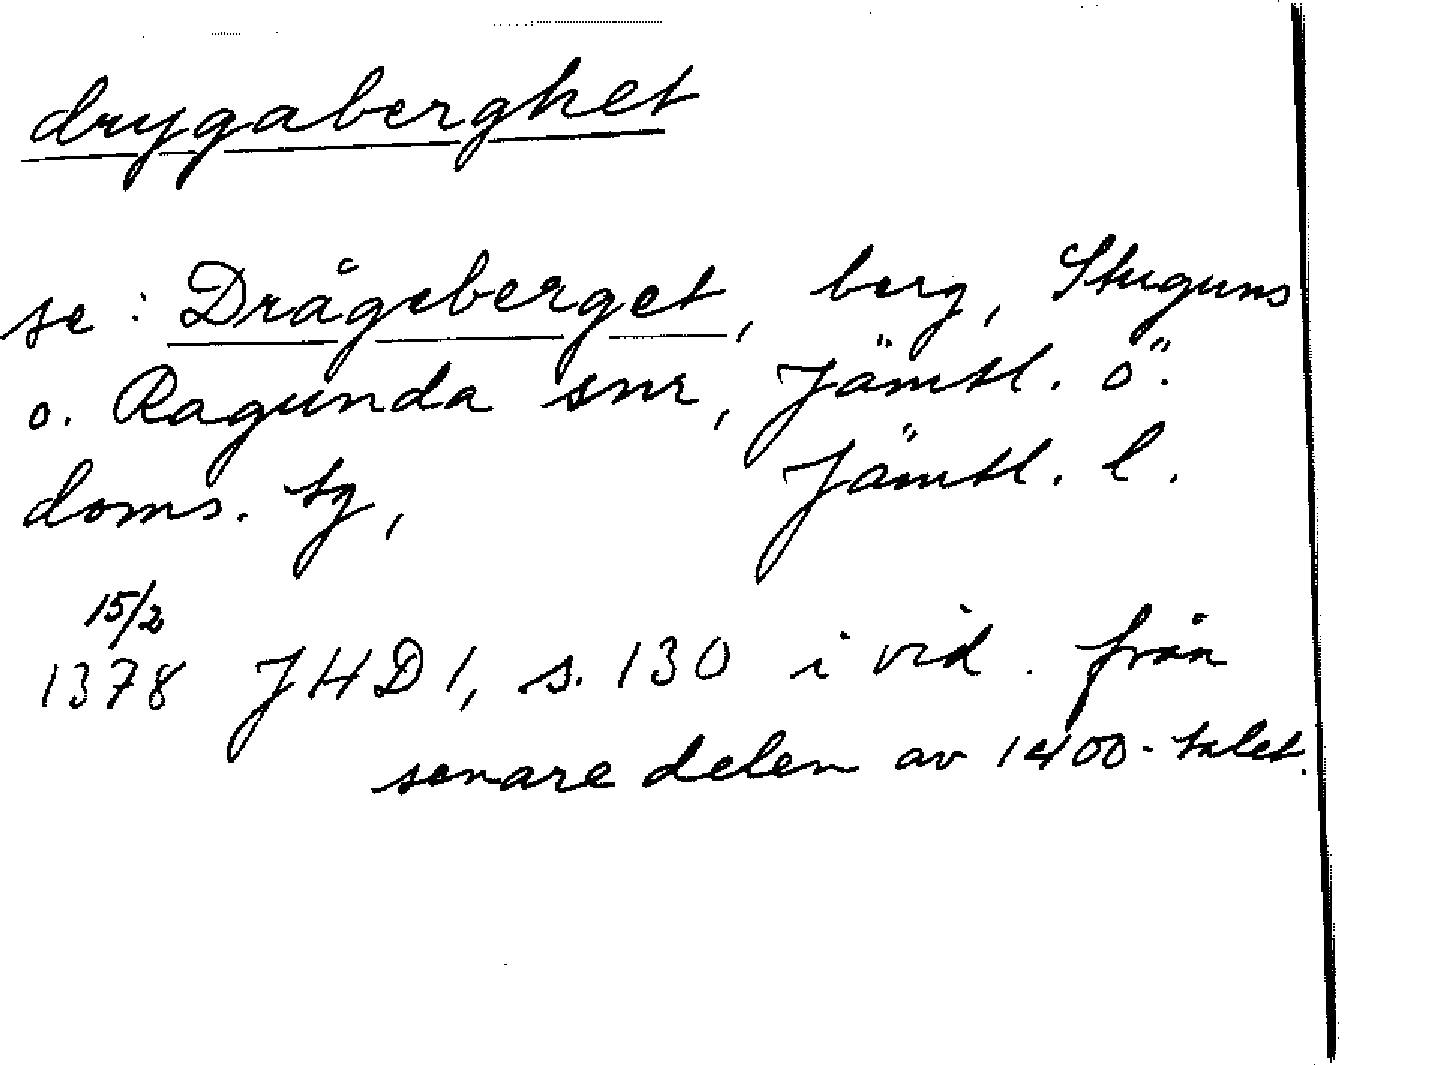 drygaberghet
se: Drågeberget, berg, Stuguns
o. Ragunda snr, Jämtl. ö.
doms. tg, Jämtl. l.
15/2
1378 JHD 1, s. 130 i vid. från
senare delen av 1400-talet.